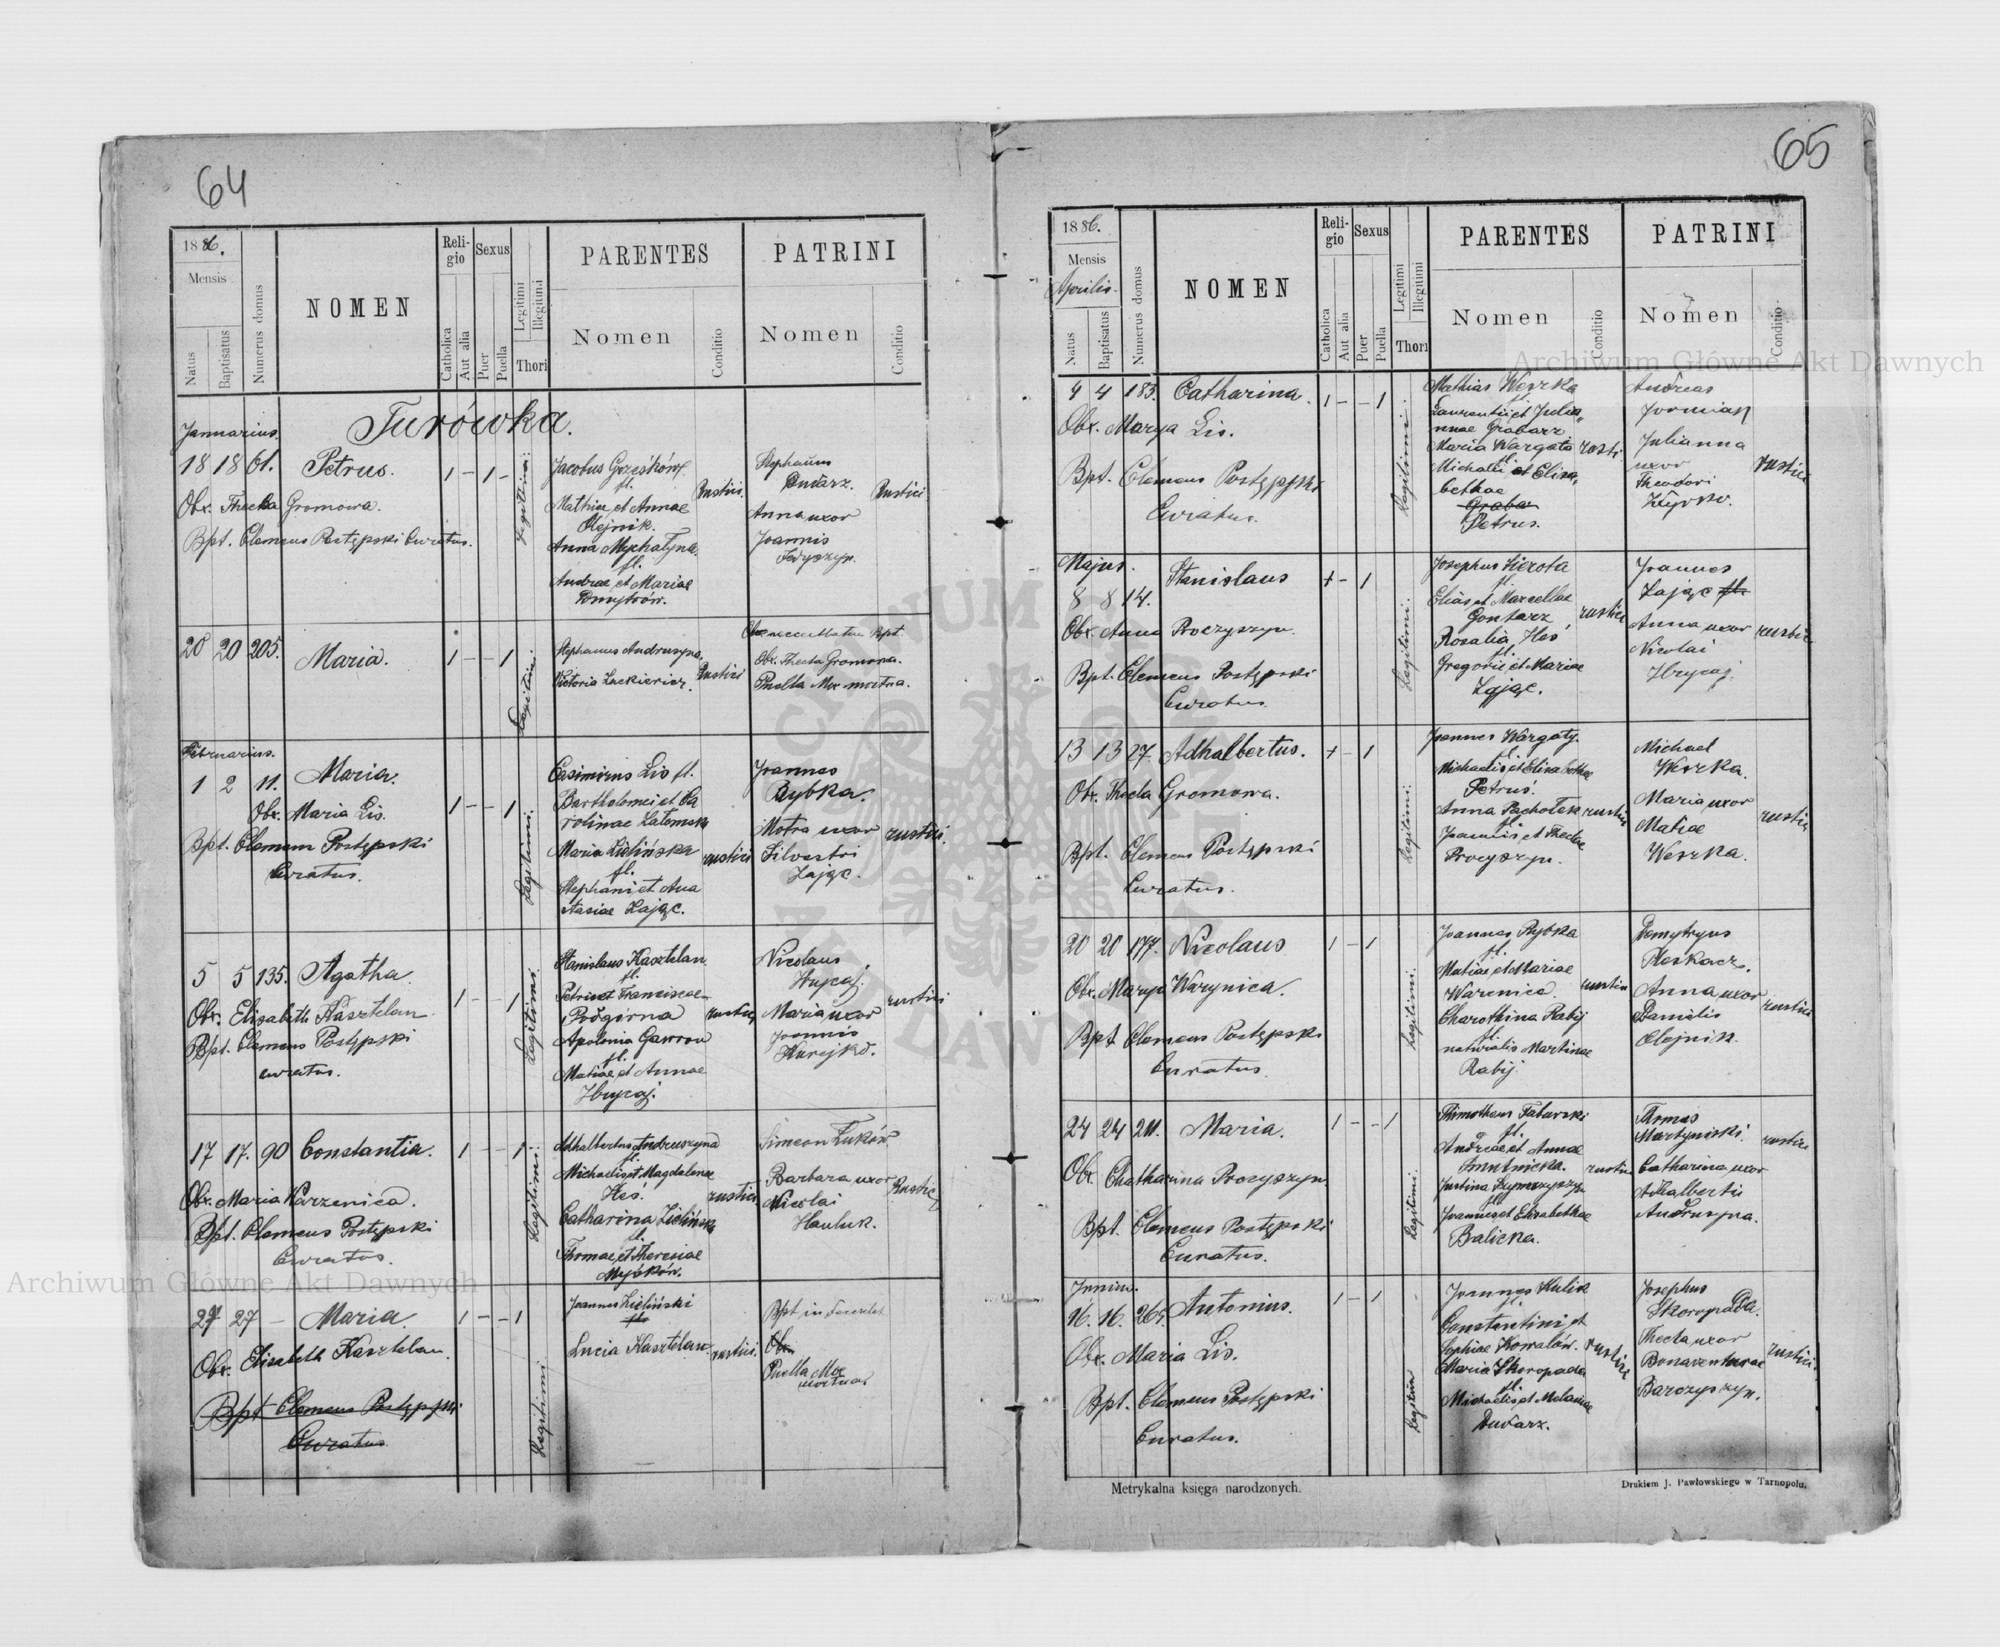 64
1886.
Mensis
Natus
Baptisatus
Numerus domus
NOMEN
Religio
Catholica
Aut alia
Sexus
Puer
Puella
Legitimi
Illegiimi
Thori
PARENTES
Nomen
Conditio
PATRINI
Nomen
Conditio
Turówka.
Januarius.
18 18 61. Petrus. 1 - 1 -
Obx. Thecla Gromowa.
Bpt. Clemens Postępski Curatus.
Legitimi.
Jacobus
fl.
Mathiae et Annae
Olejnik.
Anna Mychałyna
fl.
Andreae et Mariae
Dmytrów.
Rustici.
Stephanus
Anna uxor
Joannis
Rustici
20 20 205. Maria. 1 - - 1
Legitimi.
Stephanus Andruszyna.
Victoria Lackiewicz.
Rustici
Obx. Thecla Gromowa.
Puella Mox mortua.
Februarius.
1 2 11. Maria. 1 - - 1
Obx. Maria Lis.
Bpt. Clemens Postępski
Curatus.
Legitimi.
Casimirus Lis fl.
Bartholomei et Ca
rolinae Latomsk
Maria Zielińska
fl.
Stephani et Ana
stasiae Zając.
rustici
Joannes
Rybka.
Motra uxor
Silvestri
Zając.
rustici.
5 5 135. Agatha 1 - - 1
Obx. Elisabeth Kasztelan.
Bpt. Clemens Postępski
curatus.
Legitimi.
Stanislaus Kasztelan
fl.
Petri et Franciscae
Podgórna
Apolonia Gawron
fl.
Matiae et Annae
Hrycaj.
rustici
Nicolaus
Hrycaj.
Maria uxor
Joannis
rustici
17 17. 90 Constantia. 1 - - 1
Obx. Maria Warzenica.
Bpt. Clemens Postępski
Curatus.
Legitimi.
Adhalbertus Andruszyna
fl.
Michaelis et Magdalenae
Heś.
Catharina Zielińska
fl.
Thomae et Theresiae
Myśków.
rustici
Simeon Luków.
Barbara uxor
Nicolai
Hauluk.
Rustici
27 27 - Maria 1 - - 1
Obx. Elisabeth Kasztelan.
Bpt Clemens Postępski
Curatus
Legitimi.
Joannes Zieliński
fl.
Lucia Kasztelan.
rustici.
Obx.
Puella Mox
mortua.
65
1886.
Mensis
Aprilis.
Natus
Baptisatus
Numerus domus
NOMEN
Religio
Catholica
Aut alia
Sexus
Puer
Puella
Legitimi
Illegiimi
Thori
PARENTES
Nomen
Conditio
PATRINI
Nomen
Conditio
4 4 183. Catharina. 1 - - 1
Obx. Marya Lis.
Bpt. Clemens Postępski
Curatus.
Legitimi.
Mathias Weszka
fl.
Laurentii et Julia
nnae Grabarz
Maria Wargata
fl.
Michaelis et Elisa
bethae
Grabar
Petrus.
rusti
Andreas
Julianna
uxor
Theodori
rustici
Majus.
8 8 14. Stanislaus 1 - 1
Obx. Anna Proczyszyn.
Bpt. Clemens Postępski
Curatus.
Legitimi.
Josephus Sierota
fl.
Eliae et Marcellae
Gontarz
Rosalia Hes
fl.
Gregorii et Mariae
Zając.
rustici
Joannes
Zając fl.
Anna uxor
Nicolai
Hrycaj.
rustici
13 13 27. Adhalbertus. 1 - 1
Obx. Thecla Gromowa.
Bpt. Clemens Postępski
Curatus.
Legitimi.
Joannes Wargaty.
fl.
Michaelis et Elisabethae
Petrus.
Anna Pachołek
fl.
Joannis et Theclae
Procyszyn.
rustici
Michael
Weszka.
Maria uxor
Matiae
Weszka.
rustici
20 20 177. Nicolaus 1 - 1
Obx. Marya Warynica.
Bpt. Clemens Postępski
Curatus.
Legitimi.
Joannes Rybka
fl.
Matiae et Mariae
Warenica.
Charothina Rabij
fl.
naturalis Martinae
Rabij.
rustici
Demytryus
Pleskacz.
Anna uxor
Danielis
Olejnik.
rustici
24 24 211. Maria. 1 - - 1
Obx. Chatharina Procyszyn.
Bpt. Clemens Postępski
Curatus.
Legitimi.
Thimotheus Taburski
fl.
Andreae et Annae
Smutnicka.
Justina
fl.
Joannes et Elisabethae
Balicka.
rustici
Thomas
Martyniski.
Catharina uxor
Adhalberti
Andruszyna.
rustici
Junius.
16. 16. 265. Antonius. 1 - 1
Obx. Maria Lis.
Bpt. Clemens Postępski
Curatus.
Legitimi
Joannes Kulik
fl.
Constantini et
Sophiae Kowalów.
Maria Skoropada
fl.
Michaelis et Melaniae
Dudarz.
rustici
Josephus
Skoropada.
Thecla uxor
Bonaventurae
Barczyszyn.
rustici.
Metrykalna księga narodzonych.
Drukiem J. Pawłowskiego w Tarnopolu.
Archiwum Główne Akt Dawnych
Archiwum Główne Akt Dawnych